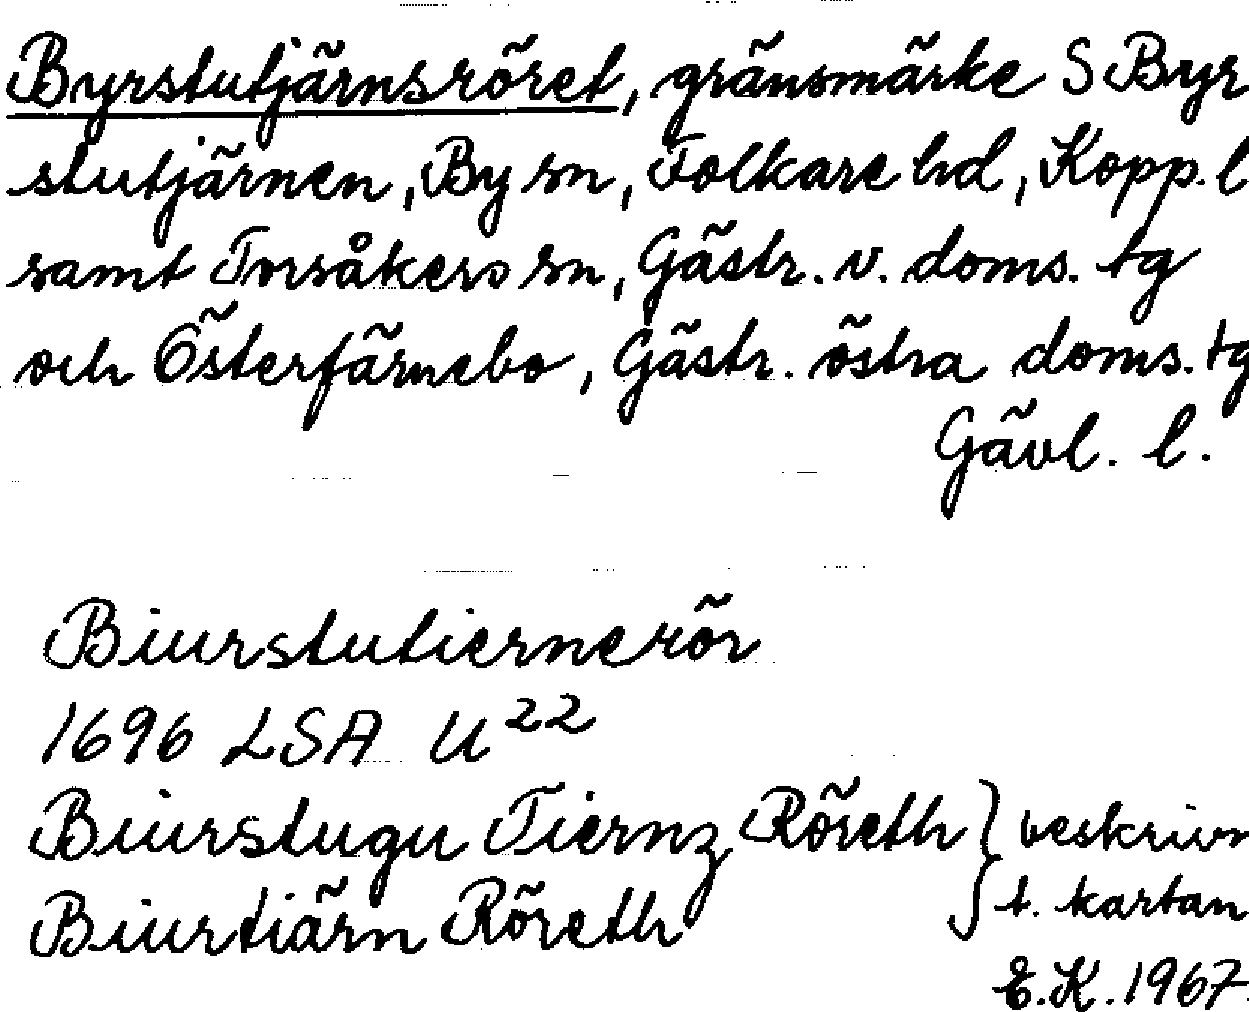 Byrstutjärnsröret, gränsmärke S Byr
stutjärnen, By sn, Folkare hd, Kopp. l
samt Torsåkers sn, Gästr. v. doms. tg
och Österfärnebo, Gästr. östra doms. tg
Gävl. l.
Biurstutiernerör
1696 LSA U 22
Biurstugu Tiernz Röreth } beskrivn
Biurtiärn Röreth } t. kartan
E.K. 1967.